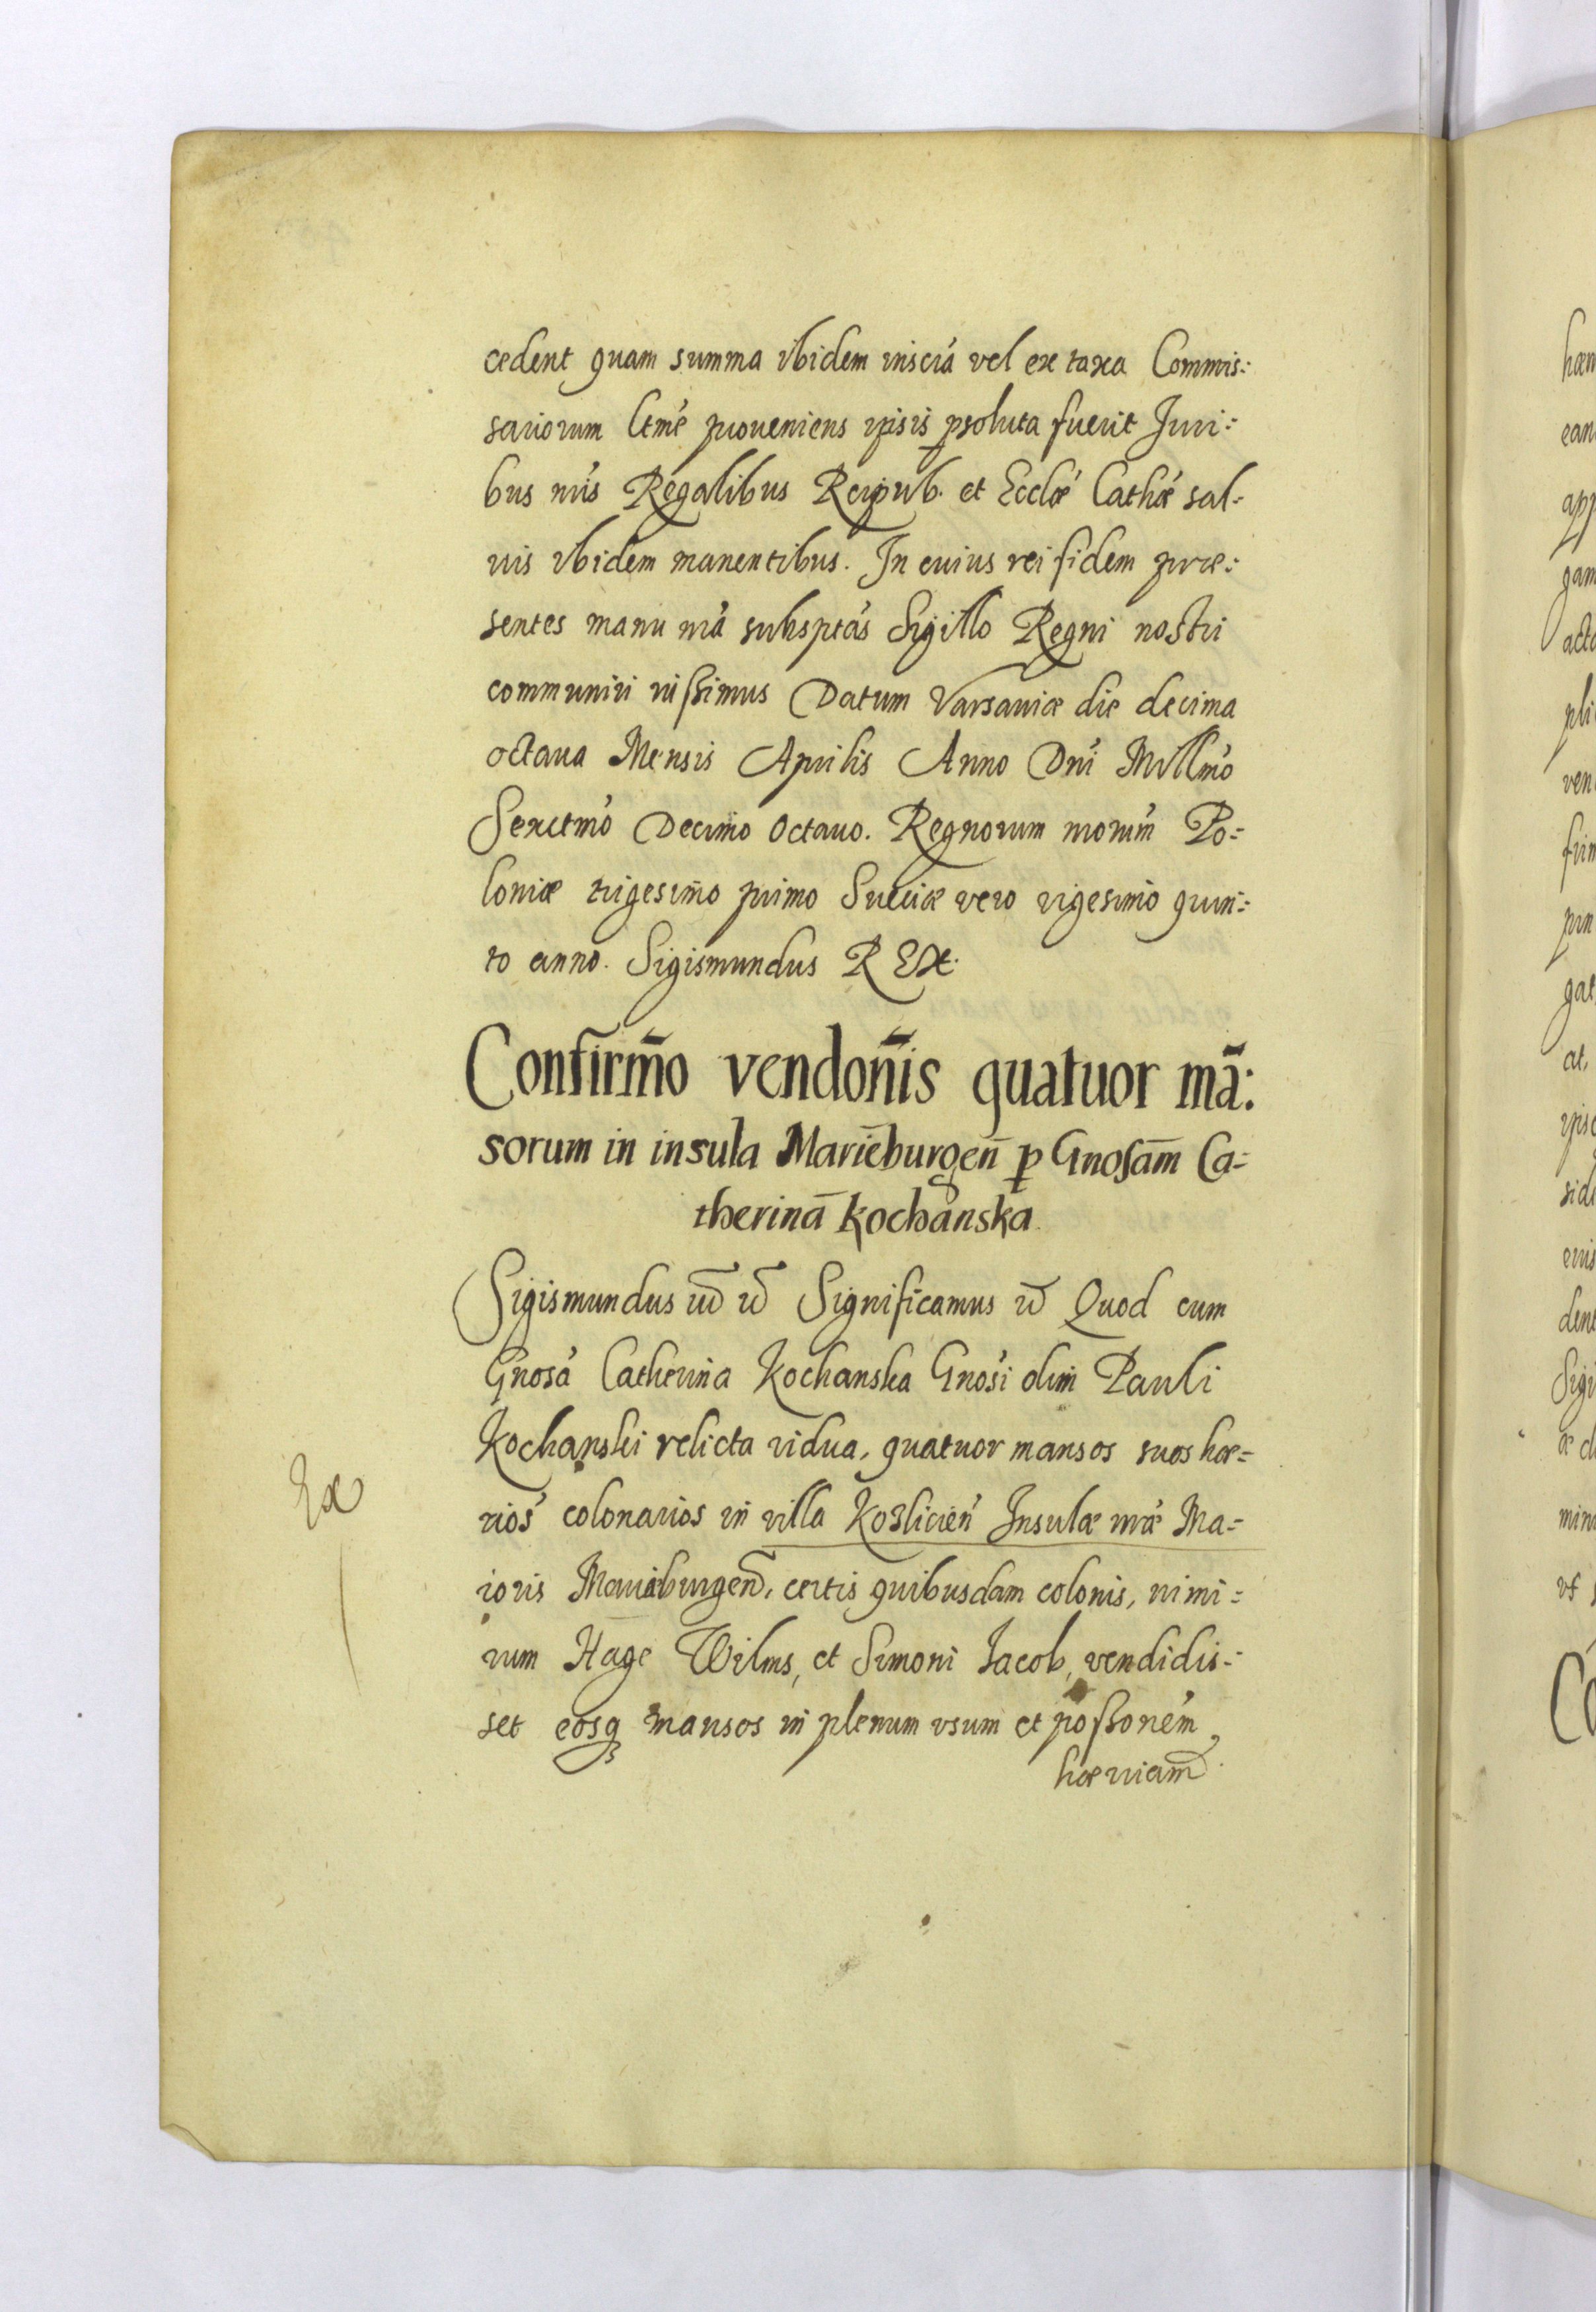 cedent quam summa ibidem inscrá vel ex taxa Commis:
sariorum ltmé proueniens ipsis psoluta fuerit Juri:
bus nrís Regalibus Reipub. et Ecclæ' Cathæ' sal-
uis ibidem manentibus. In cuius rei fidem præ:
sentes manu nrá subsptás Sigillo Regni nostri
communiri iussimus Datum Varsauiæ die decima
octaua Mensis Aprilis Anno Dní Millmó
Sexctmó Decimo Octauo. Regnorum nrorum̄ Po-
loniæ trigesimo primo Sueciæ vero vigesimo quin:
to anno. Sigismundus REX.
Confirm̄o vendon̄is quatuor mā:
sorum in insula Mariēburgen̄ p Gnosam̄ Ca-
therinā Kochanska
Sigismundus Significamus Quod cum
Gnosá Catherina Kochanska Gnosí olim Pauli
Kochanski relicta vidua, quatuor mansos suos hæ-
riós colonarios in villa Kozlicień Insulæ nræ' Ma-
ioris Marieburgen̄, certis quibusdam colonis, nimi-
rum Hage Wilms, et Simoni Iacob, vendidis-
set eosq mansos in plenum vsum et possioném,
hæriam̄
Ex